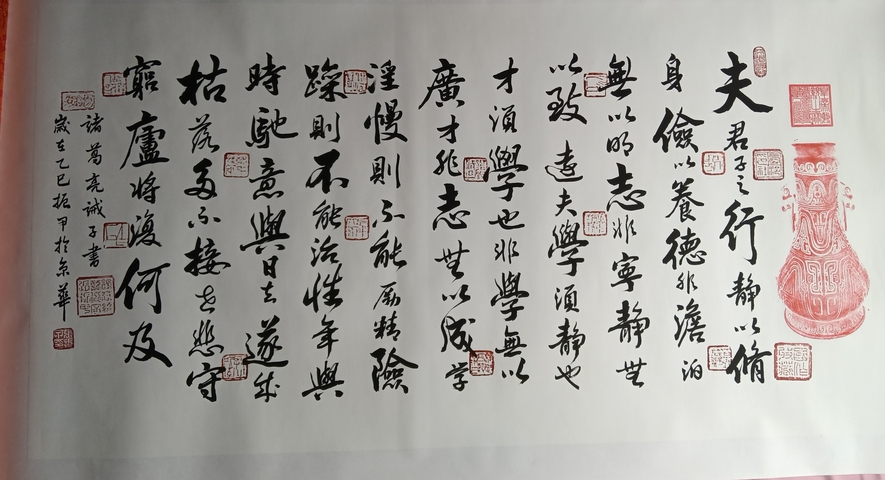 夫君子之行静以脩
身儉以養德非澹泊
無以明志非寧静無
以致遠夫學須静也
才須學也非學無以
廣才非志無以成学
淫慢則不能励精險
躁則不能治性年與
時馳意與日去遂成
枯落多不接世悲守
窮廬將復何及
諸葛亮誡子書
歲在乙巳振甲於京華